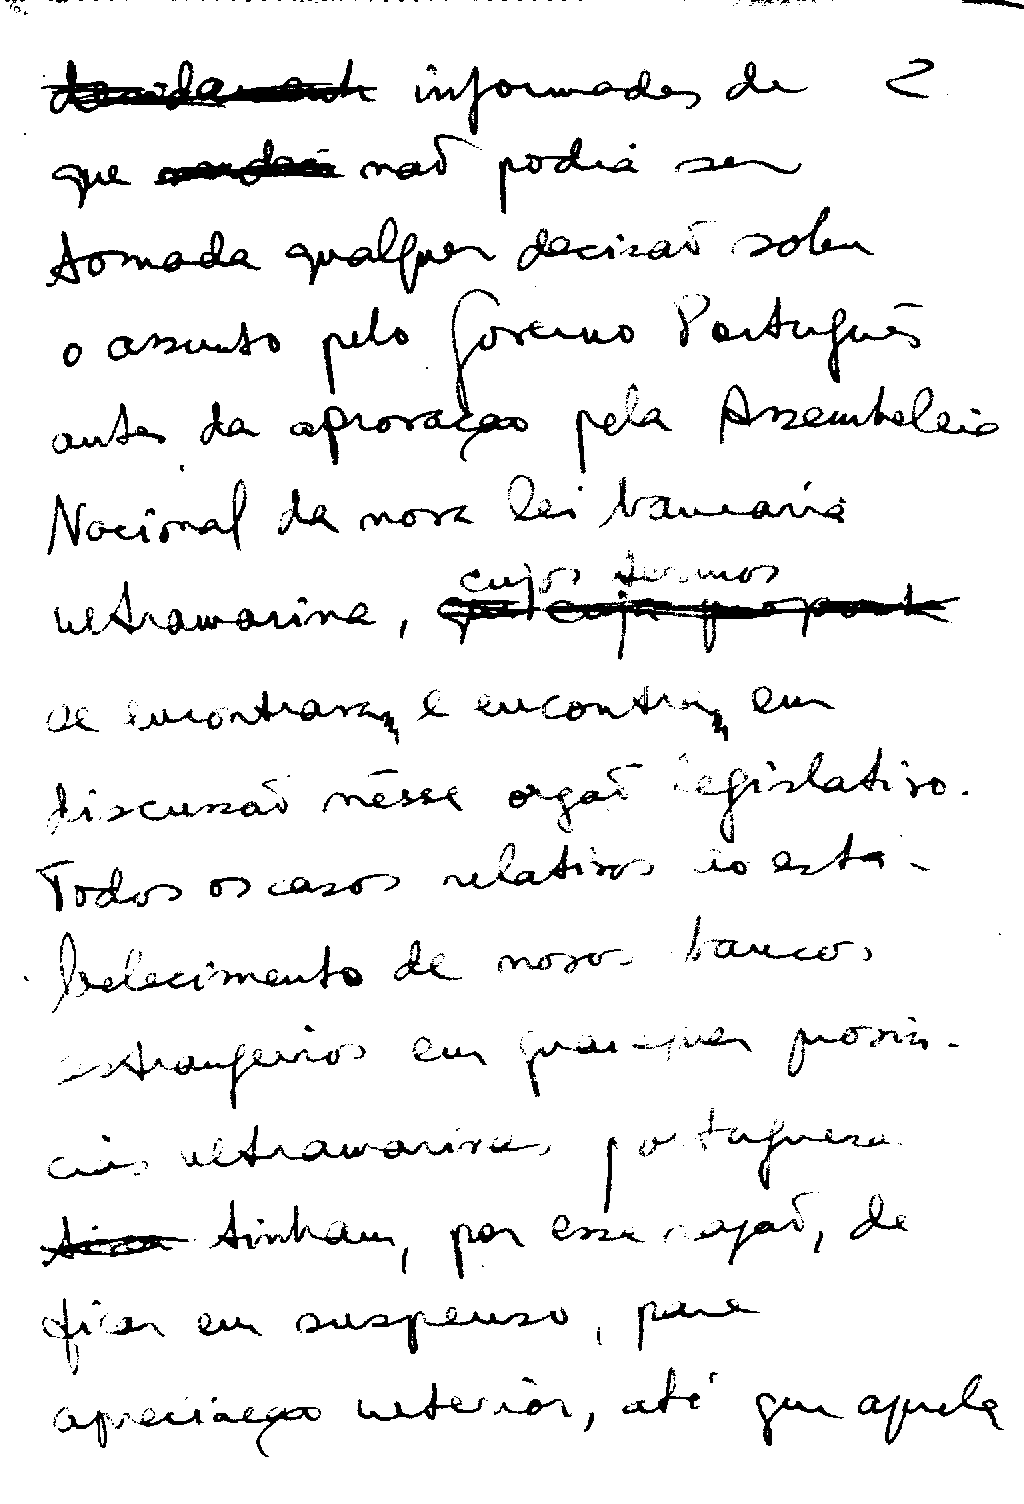 informados de 2
que não podia ser
tomada qualquer decisão sobre
o assunto pelo Governo Português
antes da aprovação pela Assembleia
Nacional da nova lei bancária
cujos termos
ultramarina,
se encontravam e encontram em
discussão nêsse orgão legislativo.
Todos os casos relativos ao esta-
belecimento de novos bancos
estrangeiros em quaisquer provín-
cias ultramarinas portuguesas
tinham, por essa razão, de
ficar em suspenso, para
apreciação ulterior, até que aquela